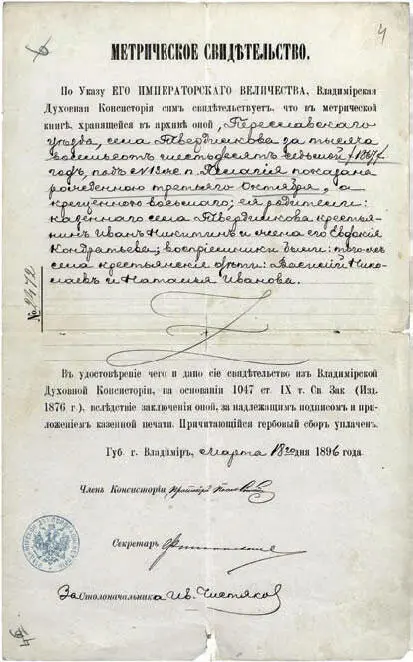 4
МЕТРИЧЕСКОЕ СВИДѢТЕЛЬСТВО.
По Указу ЕГО ИМПЕРАТОРСКАГО ВЕЛИЧЕСТВА, Владимірская
Духовная Консисторія симъ свидѣтельствуетъ, что въ метрической
книгѣ, хранящейся въ архивѣ оной, Переславскаго
уѣзда, села Твердилкова за тысяча
восемьсотъ шестьдесятъ седьмой /1867/
годъ, подъ № женс. п. Пелагія показана
рожденною третьяго Октября, а
крещенною восьмаго; ея родители:
казеннаго села Твердилкова крестья-
нинъ Иванъ Никитинъ и жена его Евдокія
Кондратьева; воспріемники были: того-же
села крестьянскіе дѣти: Василій Нико-
лаевъ и Наталья Иванова.
№ 2472
Въ удостовѣреніе чего и дано сіе свидѣтельство изъ Владимірской
Духовной Консисторіи, на основаніи 1047 ст. IX т. Св. Зак (Изд.
1876 г.), вслѣдствіе заключенія оной, за надлежащимъ подписомъ и при-
ложеніемъ казенной печати. Причитающійся гербовый сборъ уплаченъ.
Губ. г. Владиміръ, Марта 18го дня 1896 года.
Членъ Консисторіи Протоіерей
Секретарь
За Столоначальника Ив. Чистяковъ